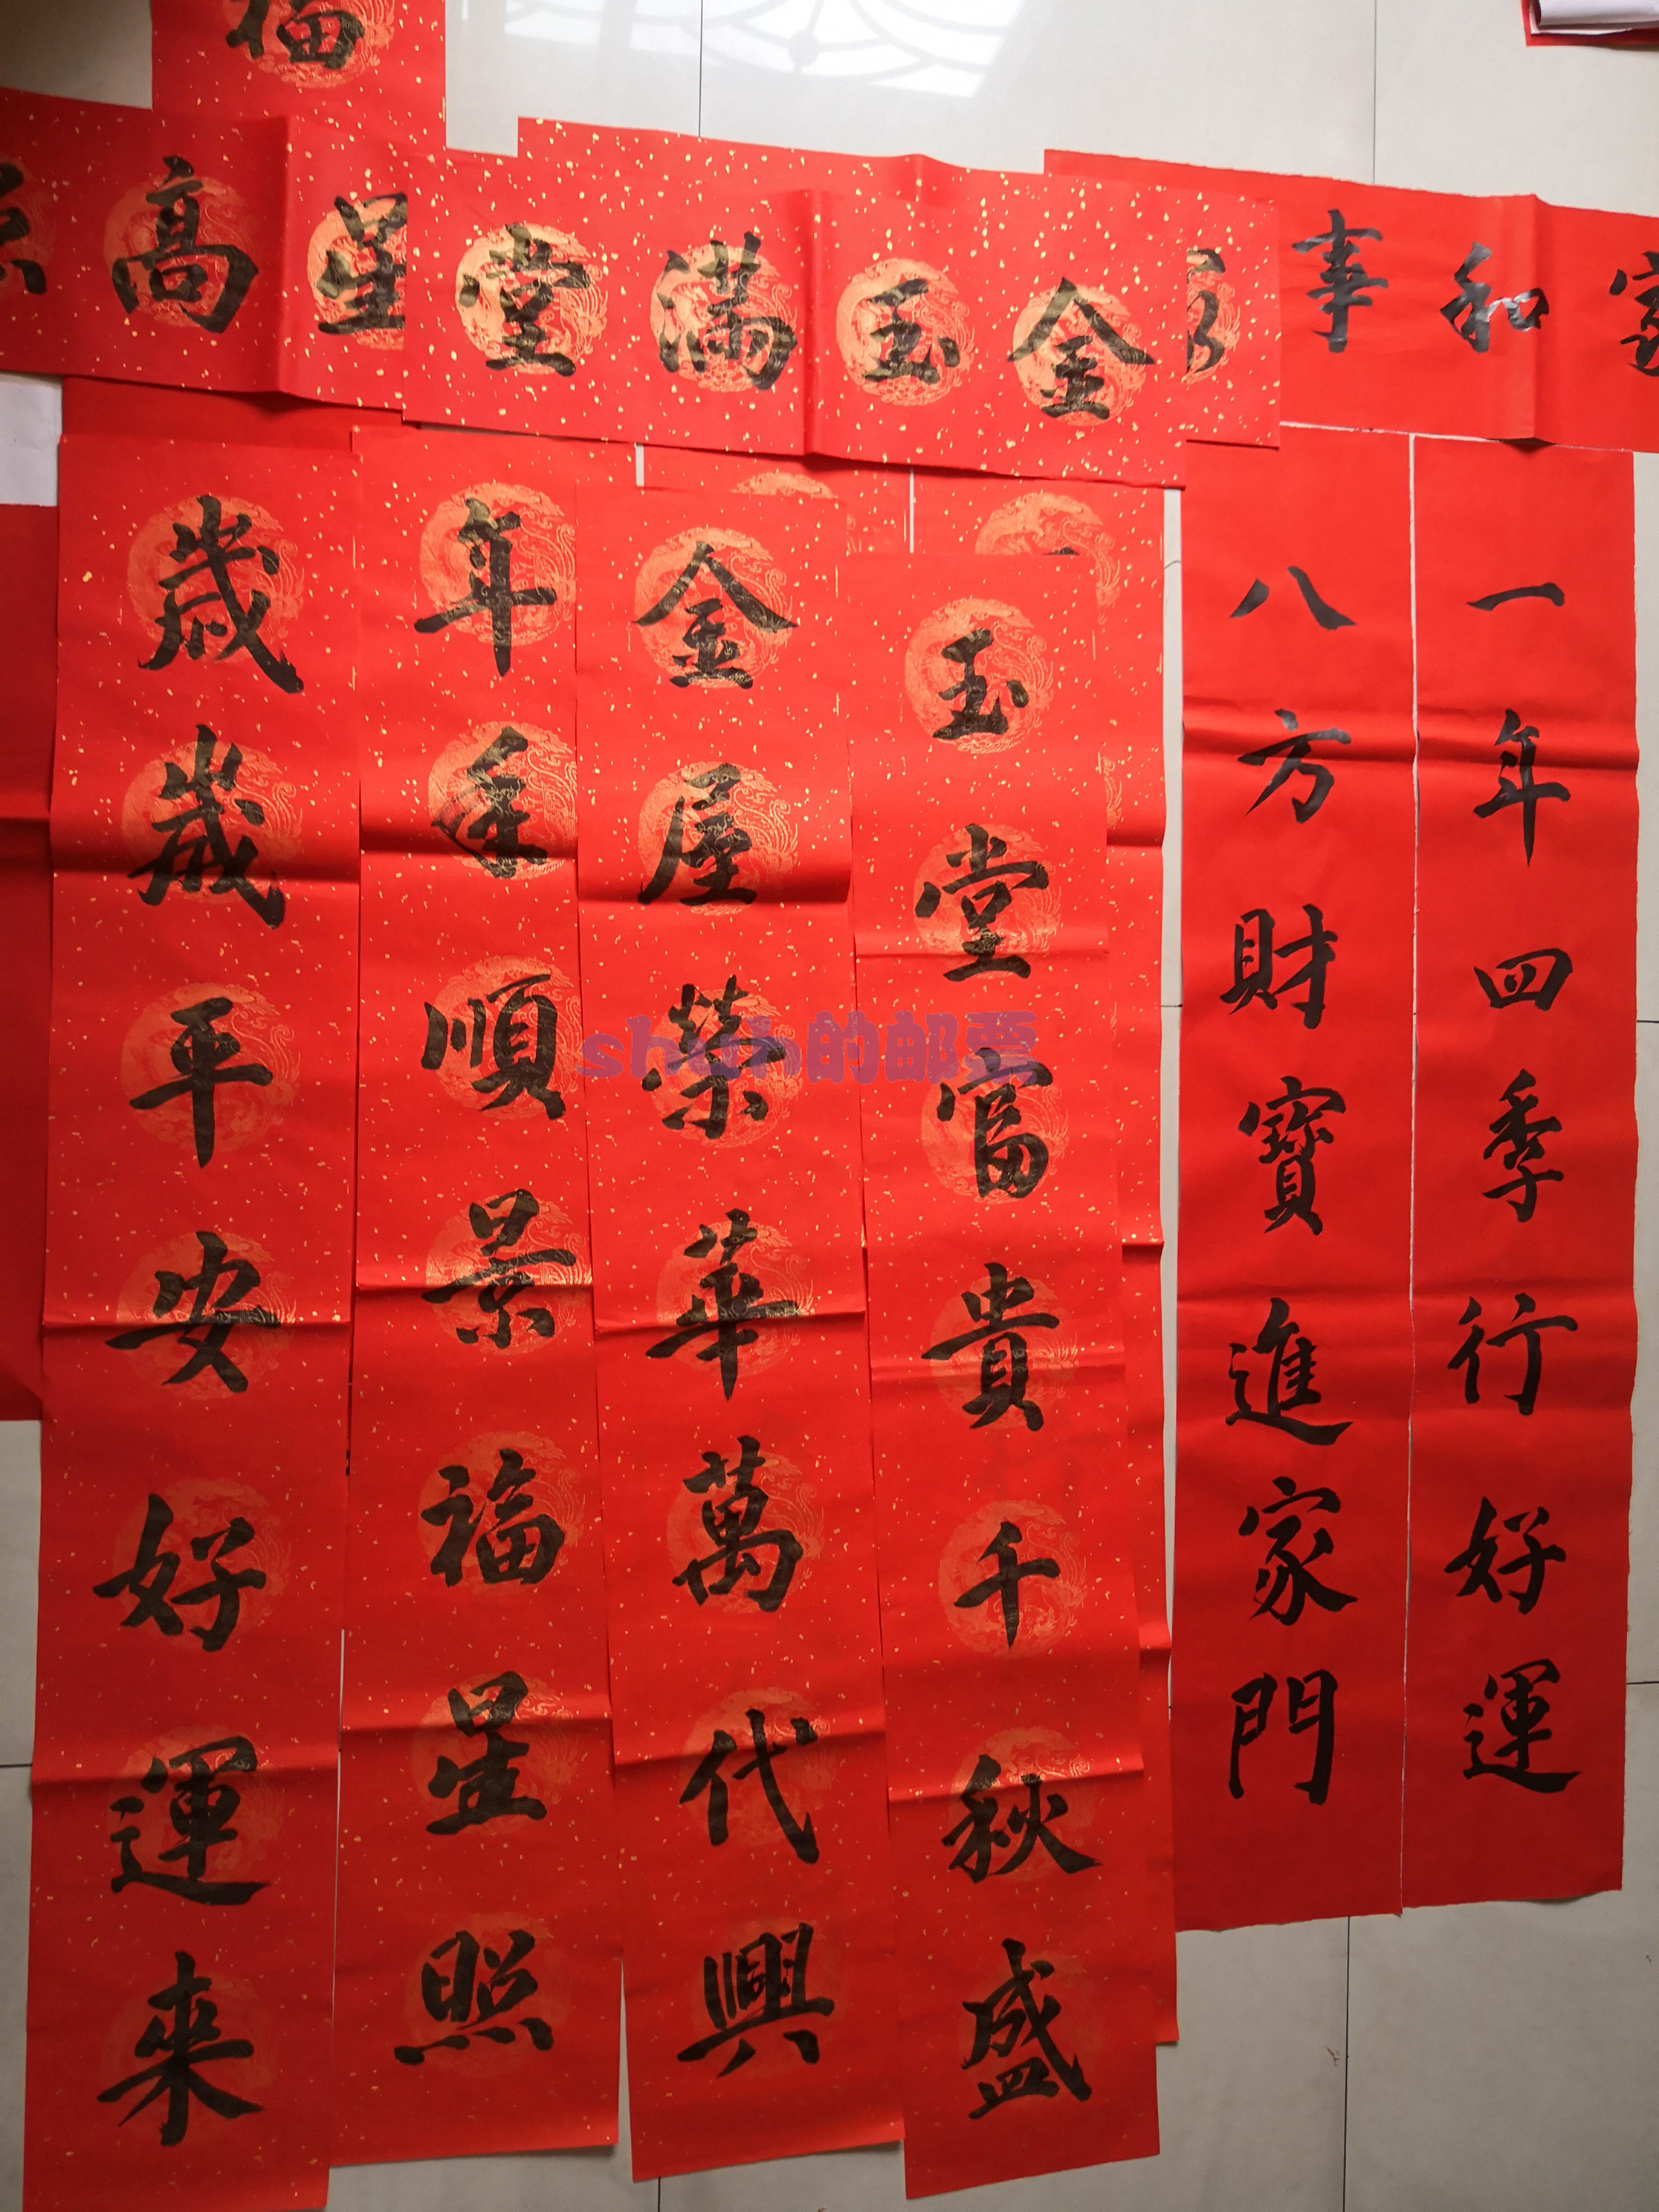 福
家和事
金玉满堂
星高
一年四季行好運
八方財寶進家門
玉堂富貴千秋盛
金屋榮華萬代興
年年順景福星照
歲歲平安好運來
的邮票